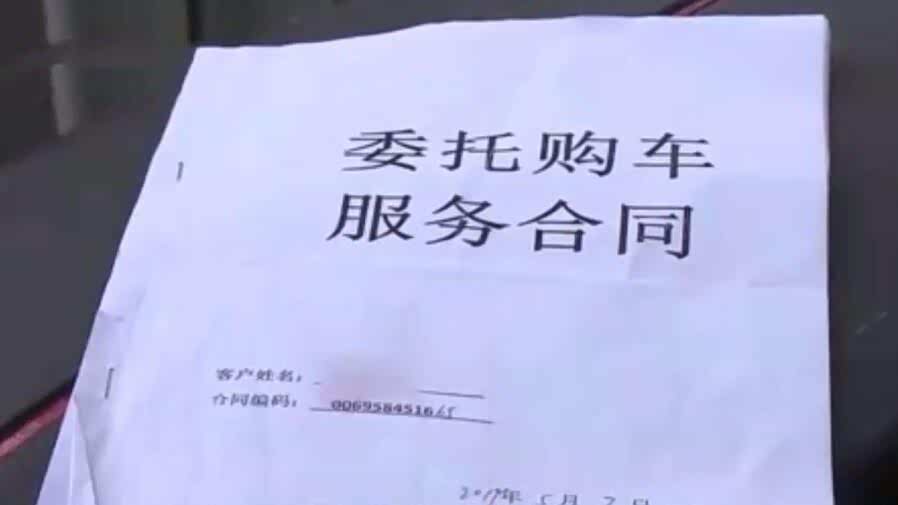 委托购车
服务合同
客户姓名:
合同编码: 0069584516
年 5月 2日